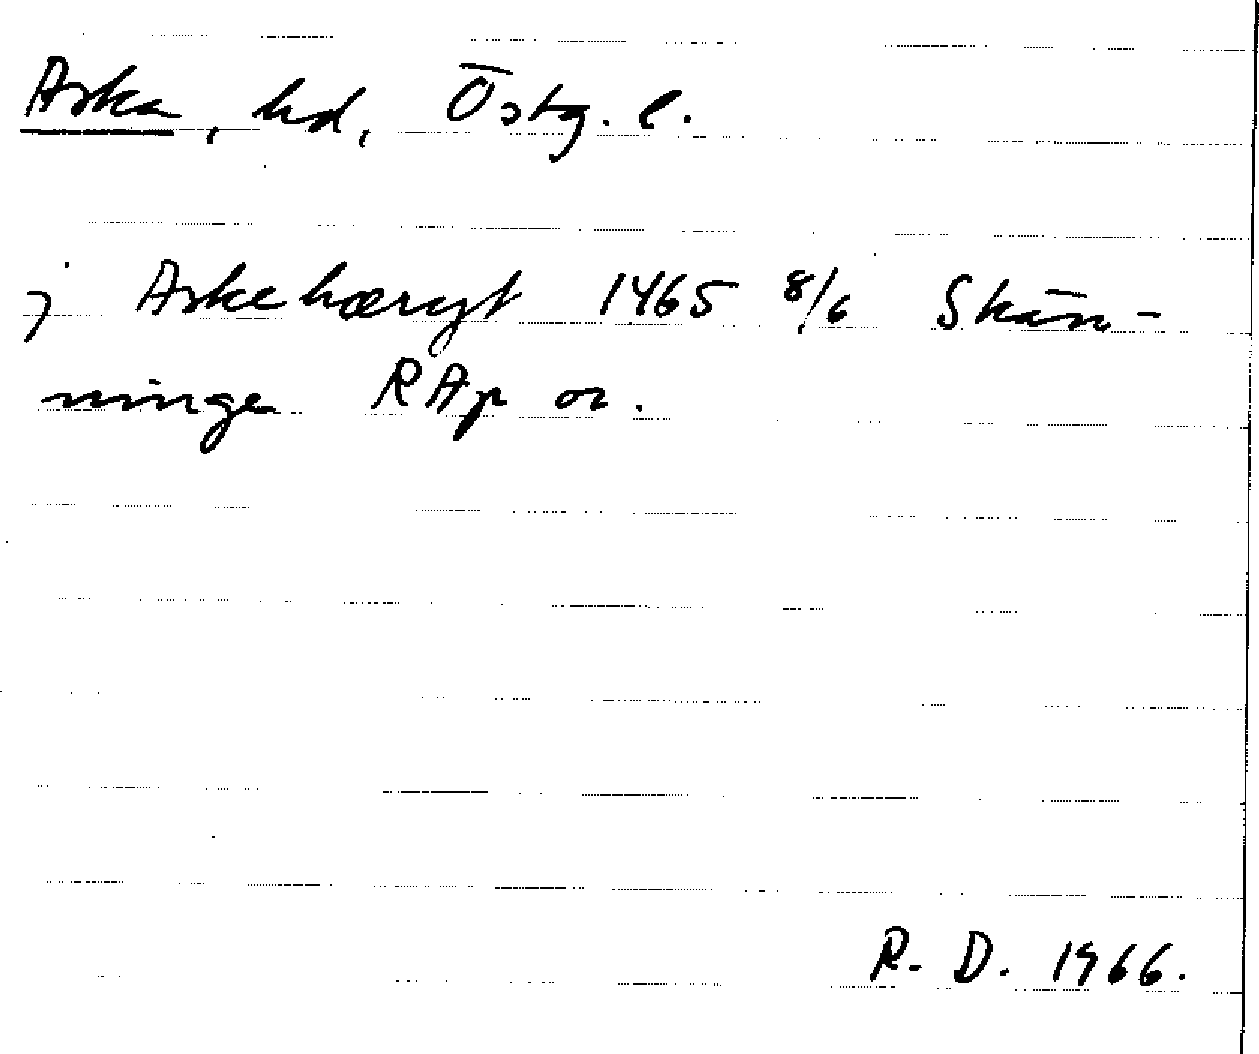 Aska, hd, Östg. l.
j Askehærgt 1465 8/6 Skän-
ninge RAp or.
R. D. 1966.